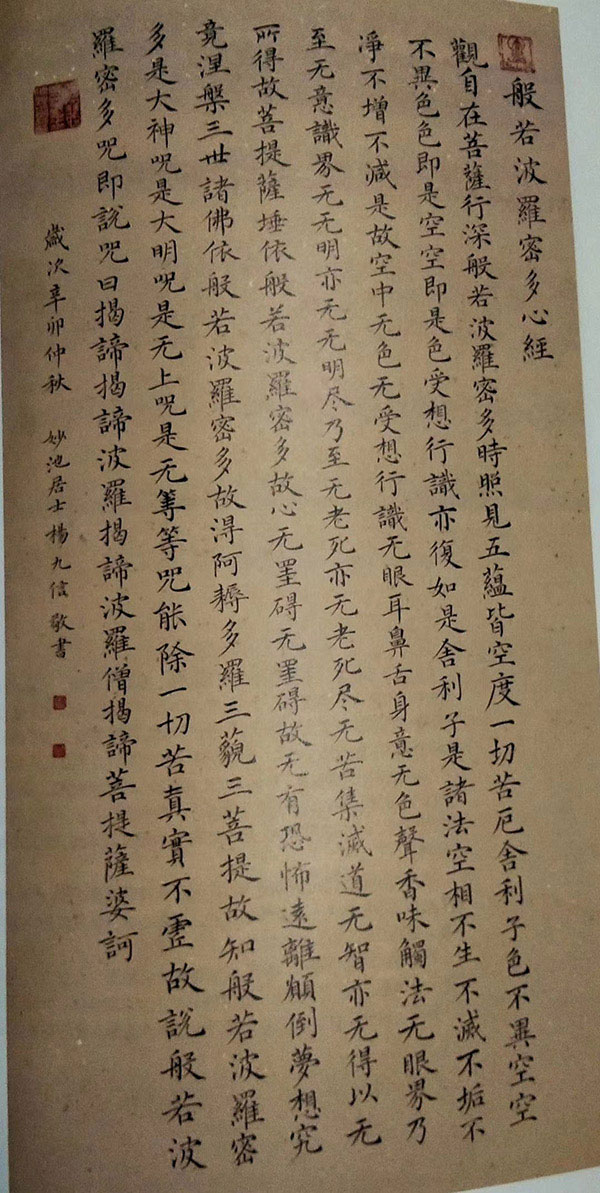 般若波羅密多心經
觀自在菩薩行深般若波羅密多時照見五蘊皆空度一切苦厄舍利子色不異空空
不異色色即是空空即是色受想行識亦復如是舍利子是諸法空相不生不滅不垢不
淨不增不减是故空中无色无受想行識无眼耳鼻舌身意无色聲香味觸法无眼界乃
至无意識界无无明亦无无明尽乃至无老死亦无老死尽无苦集滅道无智亦无得以无
所得故菩提薩埵依般若波羅密多故心无罣碍无罣碍故无有恐怖遠離顛倒夢想究
竟涅槃三世諸佛依般若波羅密多故淂阿耨多羅三藐三菩提故知般若波羅密
多是大神呪是大明呪是无上呪是无等等呪能除一切苦真實不虛故說般若波
羅密多呪即說呪曰揭諦揭諦波羅揭諦波羅僧揭諦菩提薩婆訶
歲次辛卯仲秋 妙池居士楊九信敬書